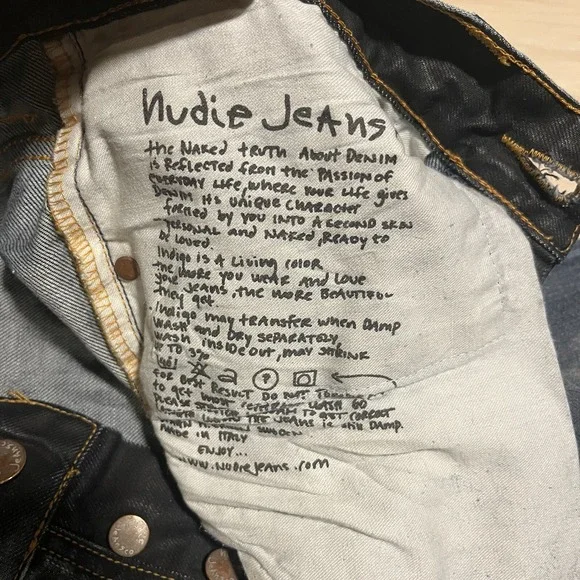 Nudie Jeans
the NAKED tRUTH About DENIM
is REflECtED fRoM thE PASSION of
EVERYDAY LifE, wHERE YOUR LifE givES
DENIM its UNiQUE CHARACtER
foRMED by YOU INTO A SECOND SKIN
PERSONAL AND NAKED, READY to
bE LOVED.
Indigo is A Living coloR
thE MoRE you wEAR AND LOVE
youR JEANS, thE MORE BEAUTIFUL
thEy gEt.
Indigo may tRANSfER wHEN DAMP
WASH AND DRY SEPARATELY,
WASH iNSidE out, MAY SHRINK
UP TO 3%
foR BESt RESULT DO NOT
to gEt MOST WASH 60
PLEASE to gEt CORRECT
thE JEANS is still DAMP.
MADE iN ITALY
ENJOY...
www.NudiEJEANS.com